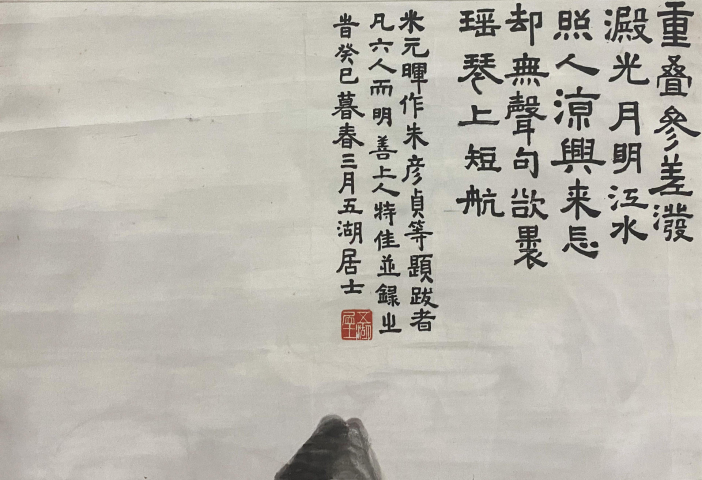 重叠參差潑
澱光月明江水
照人涼興来忘
却無聲句欲裹
瑶琴上短航
米元暉作朱彦貞等題跋者
凡六人而明善上人特佳並錄之
旹癸巳暮春三月五湖居士
五湖居士